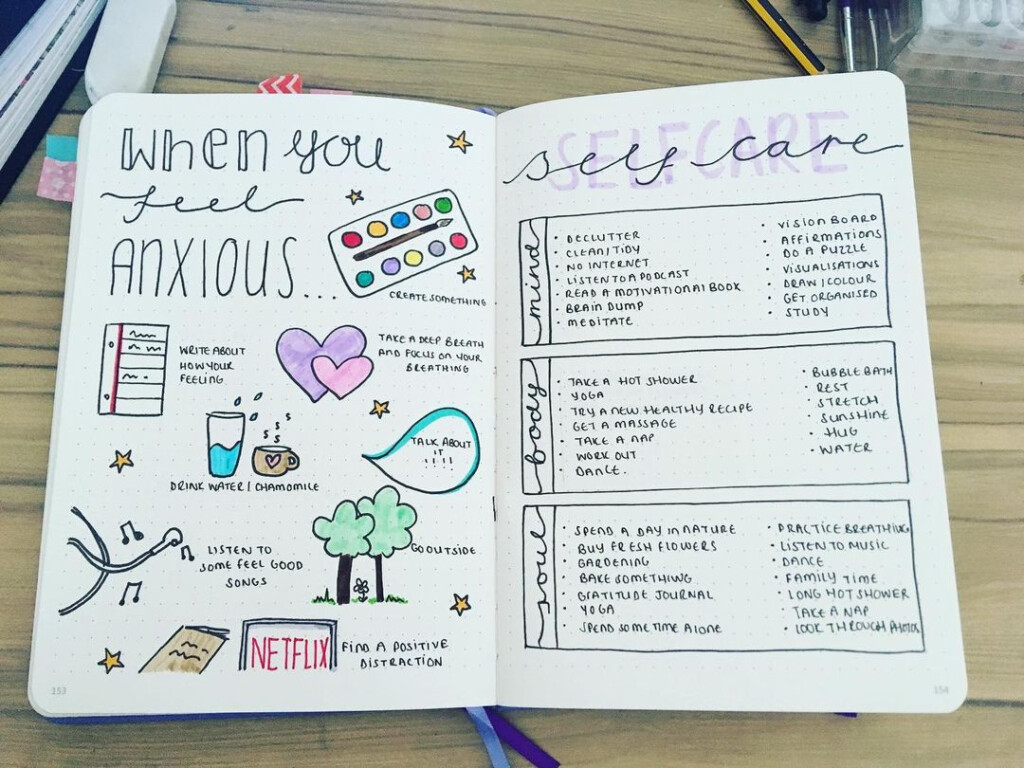 When you
feel
ANXIOUS...
CREATE SOMETHING
WRITE ABOUT
HOW YOUR
FEELING
TAKE A DEEP BREATH
AND FOCUS ON YOUR
BREATHING
DRINK WATER / CHAMOMILE
TALK ABOUT
IT
!!!!
LISTEN TO
SOME FEEL GOOD
SONGS
GO OUTSIDE
NETFLIX
FIND A POSITIVE
DISTRACTION
153
SELFCARE
self care
mind
• DECLUTTER
• CLEAN / TIDY
• NO INTERNET
• LISTEN TO A PODCAST
• READ A MOTIVATIONAL BOOK
• BRAIN DUMP
• MEDITATE
• VISION BOARD
• AFFIRMATIONS
• DO A PUZZLE
• VISUALISATIONS
• DRAW / COLOUR
• GET ORGANISED
• STUDY
body
• TAKE A HOT SHOWER
• YOGA
• TRY A NEW HEALTHY RECIPE
• GET A MASSAGE
• TAKE A NAP
• WORK OUT
• DANCE.
• BUBBLE BATH
• REST
• STRETCH
• SUNSHINE
• HUG
• WATER
soul
• SPEND A DAY IN NATURE
• BUY FRESH FLOWERS
• GARDENING
• BAKE SOMETHING
• GRATITUDE JOURNAL
• YOGA
• SPEND SOME TIME ALONE
• PRACTICE BREATHING
• LISTEN TO MUSIC
• DANCE
• FAMILY TIME
• LONG HOT SHOWER
• TAKE A NAP
• LOOK THROUGH PHOTOS
154